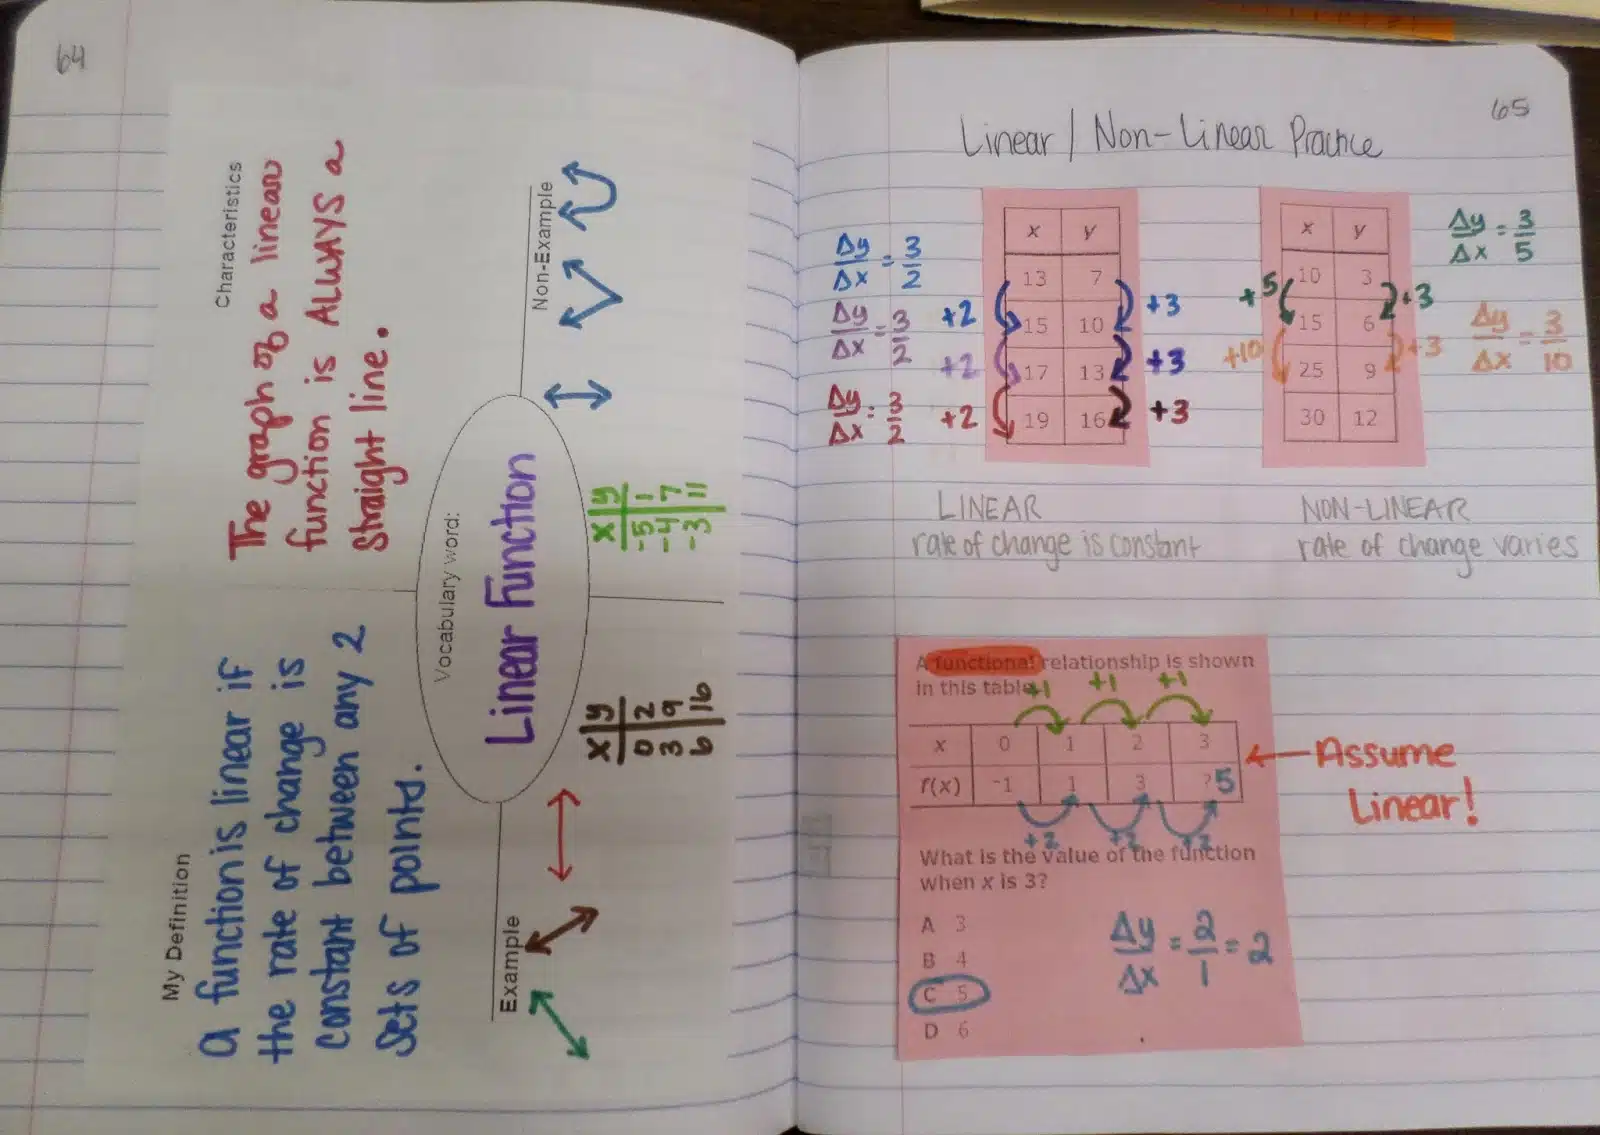 64
My Definition
A function is linear if
the rate of change is
constant between any 2
sets of points.
Characteristics
The graph of a linear
function is ALWAYS a
straight line.
Vocabulary word:
Linear Function
Example
x y
0 2
3 9
6 16
Non-Example
x y
-5 1
-4 7
-3 11
65
Linear / Non-Linear Practice
Δy/Δx = 3/2
Δy/Δx = 3/2
Δy/Δx = 3/2
x y
13 7
15 10
17 13
19 16
+2 +3
+2 +3
+2 +3
LINEAR
rate of change is constant
x y
10 3
15 6
25 9
30 12
+5 +3
+10 +3
Δy/Δx = 3/5
Δy/Δx = 3/10
NON-LINEAR
rate of change varies
A functional relationship is shown
in this table
+1 +1 +1
x 0 1 2 3
f(x) -1 1 3 ? 5
+2 +2 +2
Assume
Linear!
What is the value of the function
when x is 3?
A 3
B 4
C 5
D 6
Δy/Δx = 2/1 = 2